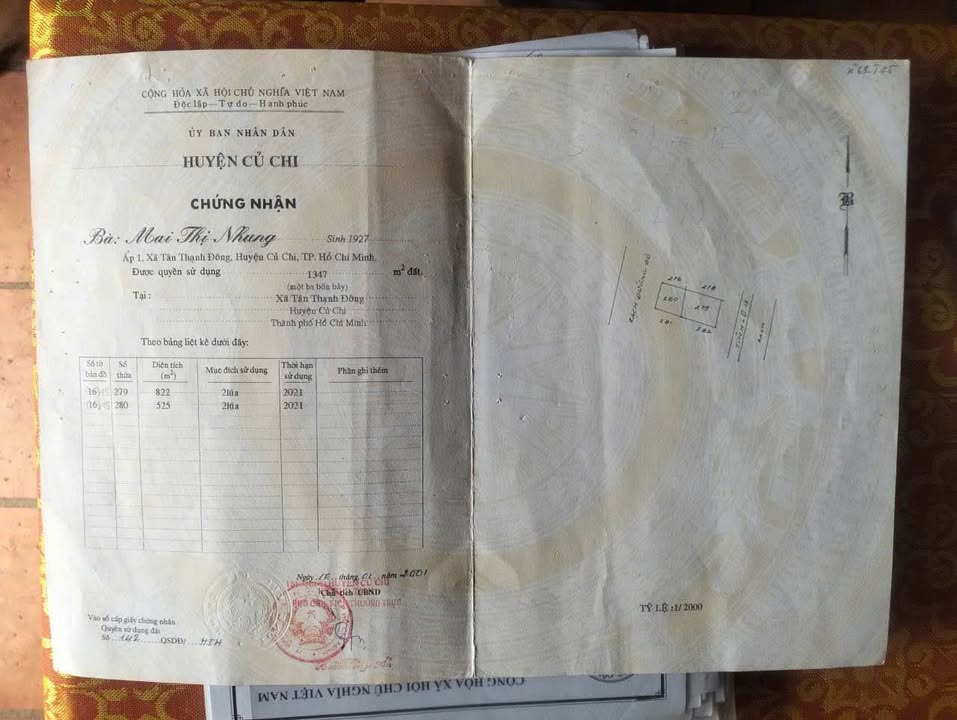 CỘNG HÒA XÃ HỘI CHỦ NGHĨA VIỆT NAM
Độc lập — Tự do — Hạnh phúc
ỦY BAN NHÂN DÂN
HUYỆN CỦ CHI
CHỨNG NHẬN
Bà: Mai Thị Nhung Sinh 1927
Ấp 1, Xã Tân Thạnh Đông, Huyện Củ Chi, TP. Hồ Chí Minh.
Được quyền sử dụng 1347 m² đất.
(một ba bốn bảy)
Tại : Xã Tân Thạnh Đông
Huyện Củ Chi
Thành phố Hồ Chí Minh
Theo bảng liệt kê dưới đây:
Số tờ bản đồ Số thửa Diện tích (m²) Mục đích sử dụng Thời hạn sử dụng Phần ghi thêm
16 279 822 2lúa 2021
16 280 525 2lúa 2021
Ngày tháng năm 2001
Chủ tịch UBND
PHÓ CHỦ TỊCH THƯỜNG TRỰC
Vào sổ cấp giấy chứng nhận
Quyền sử dụng đất
Số 142 QSDĐ/
B
RẠCH ĐƯỜNG ĐÒ
280
279
281
282
RẠCH
TỶ LỆ :1/ 2000
CỘNG HÒA XÃ HỘI CHỦ NGHĨA VIỆT NAM